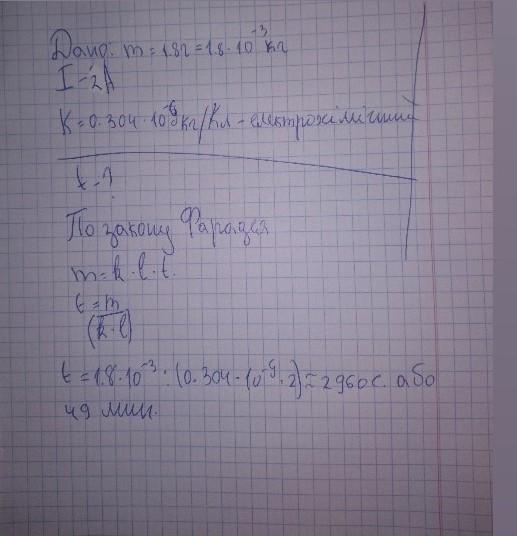 Дано: m = 1.8г = 1.8 · 10⁻³ кг
I - 2А
K = 0.304 · 10⁻⁶ кг/Кл - електрохімічний
t - ?
По закону Фарадея
m = k · l · t.
t = m
(k · l)
t = 1.8 · 10⁻³ : (0.304 · 10⁻⁶ · 2) ≈ 2960 с. або
49 мин.